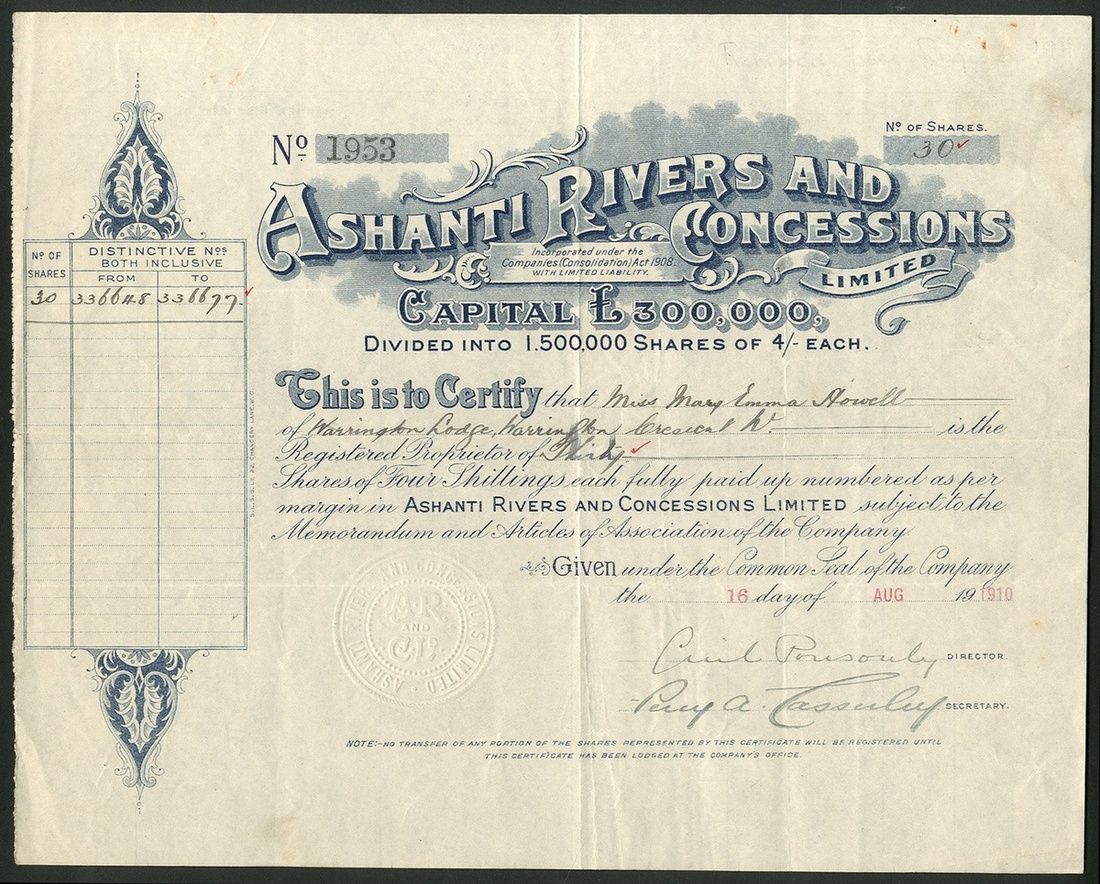 No 1953
No OF SHARES.
30
ASHANTI RIVERS AND
CONCESSIONS
LIMITED
Incorporated under the
Companies (Consolidation) Act 1908.
WITH LIMITED LIABILITY.
CAPITAL £300,000,
DIVIDED INTO 1.500,000 SHARES OF 4/- EACH.
No OF SHARES
DISTINCTIVE Nos BOTH INCLUSIVE
FROM TO
30 336648 336677
This is to Certify that Miss Mary Emma Howell
of Warrington Lodge, Warrington Crescent W. is the
Registered Proprietor of Thirty
Shares of Four Shillings each fully paid up numbered as per
margin in ASHANTI RIVERS AND CONCESSIONS LIMITED subject to the
Memorandum and Articles of Association of the Company
Given under the Common Seal of the Company
the 16 day of AUG 19 1910
ASHANTI RIVERS AND CONCESSIONS LIMITED
A.R.
AND
Cyril Ponsonby DIRECTOR.
Percy A. SECRETARY.
NOTE:-NO TRANSFER OF ANY PORTION OF THE SHARES REPRESENTED BY THIS CERTIFICATE WILL BE REGISTERED UNTIL
THIS CERTIFICATE HAS BEEN LODGED AT THE COMPANY'S OFFICE.